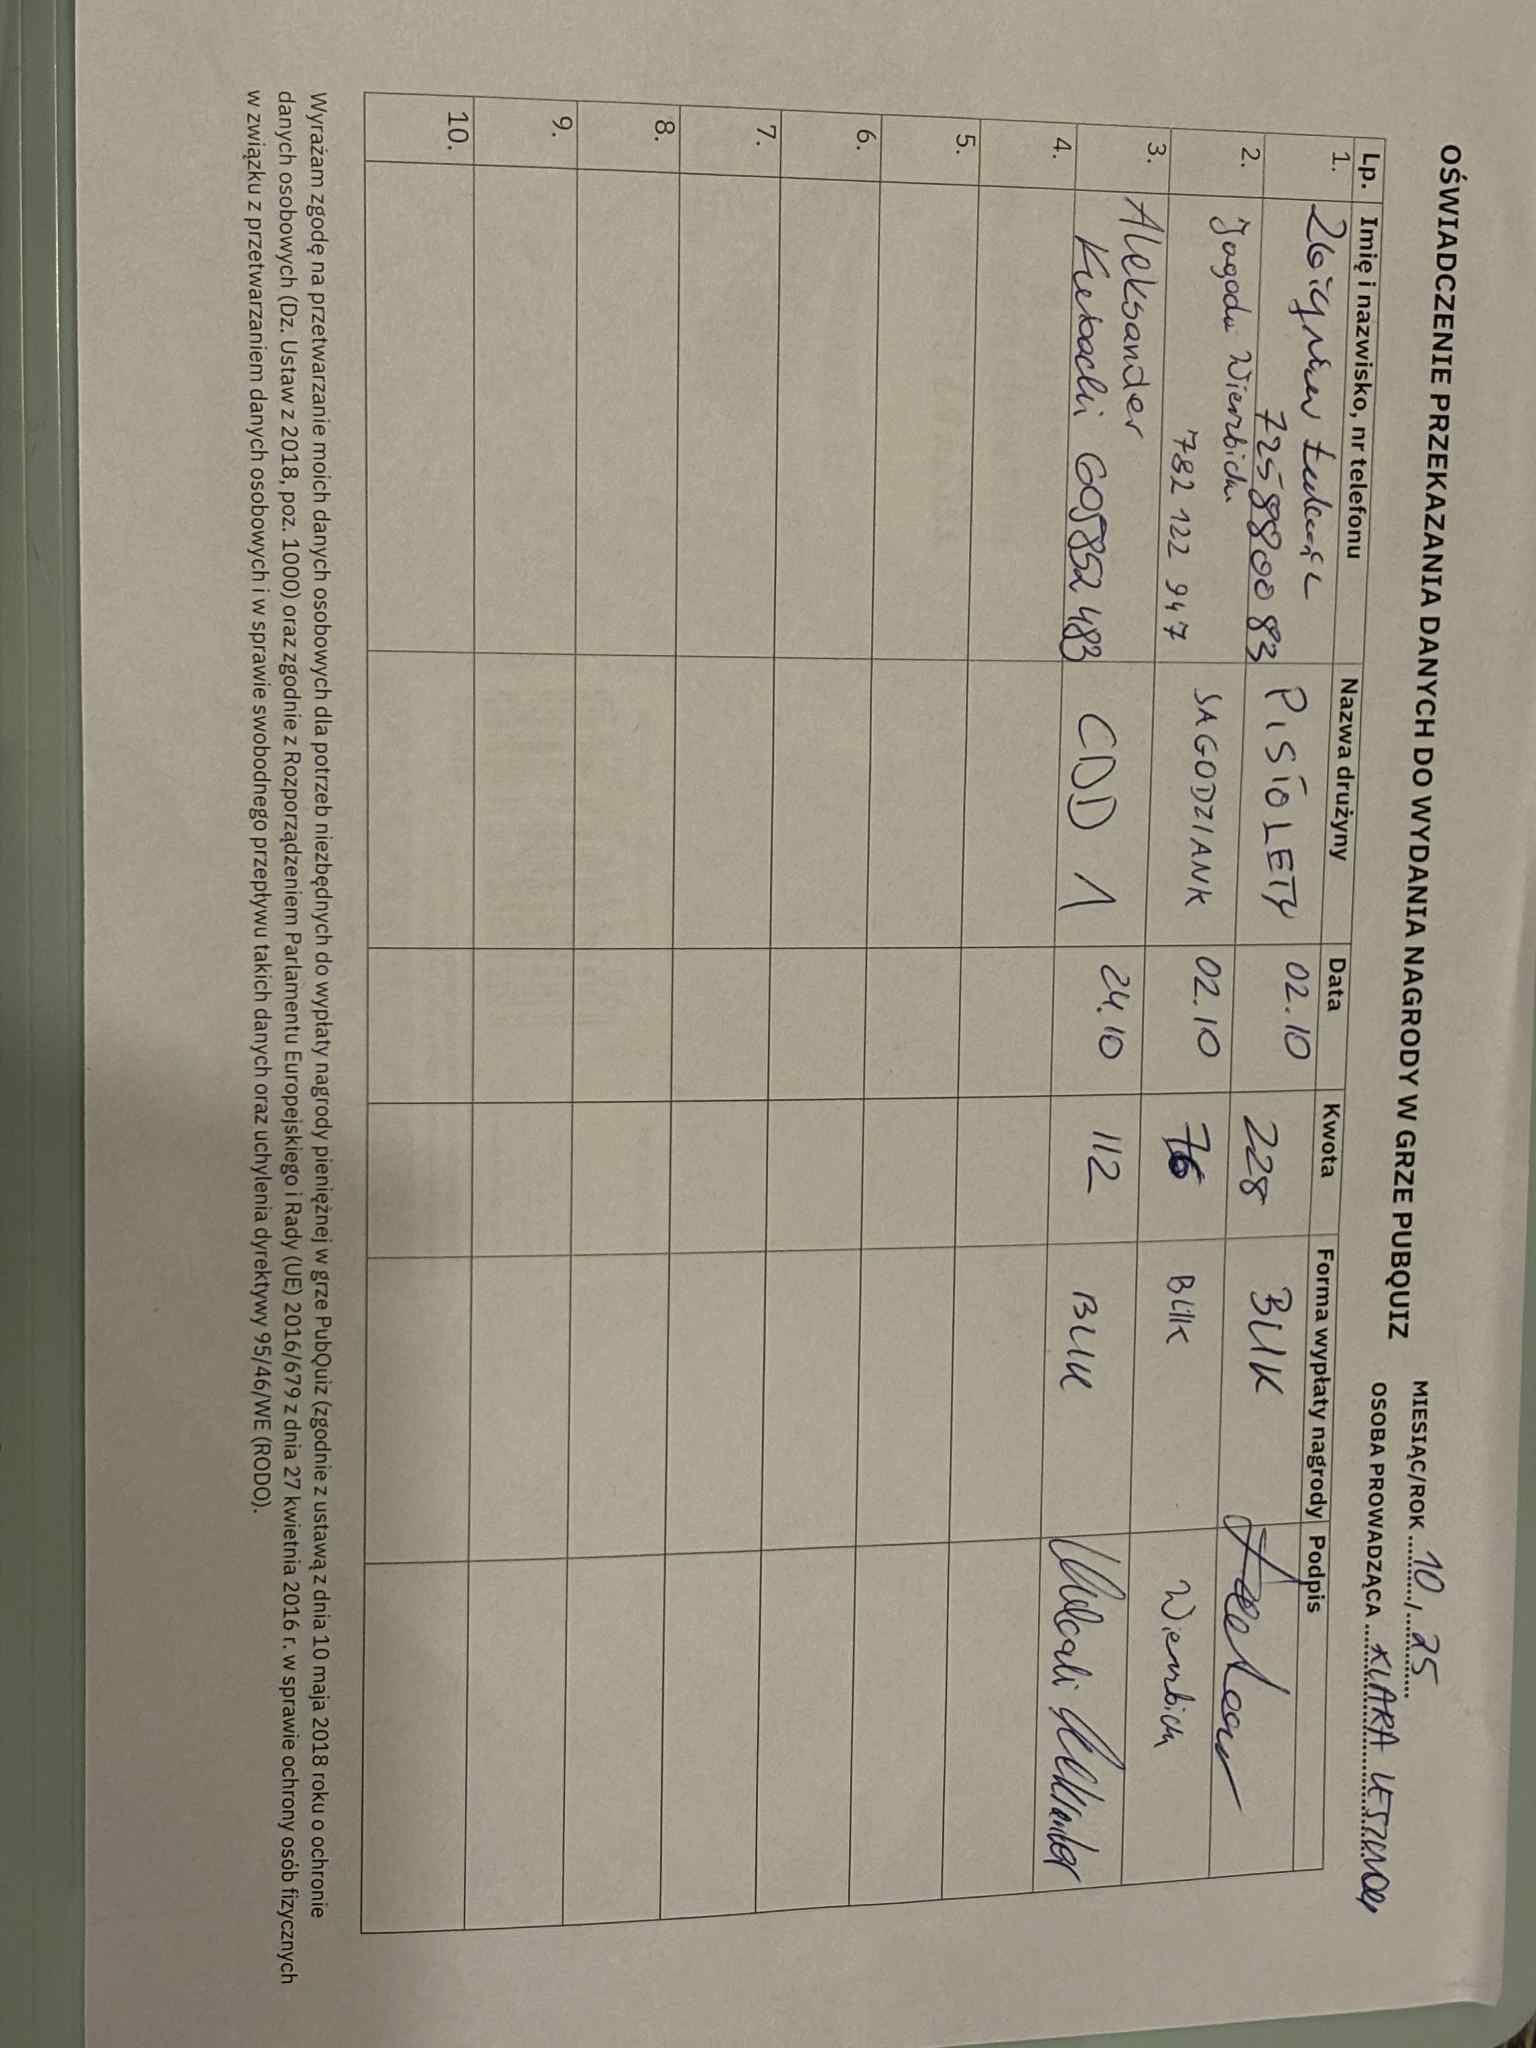 OŚWIADCZENIE PRZEKAZANIA DANYCH DO WYDANIA NAGRODY W GRZE PUBQUIZ
MIESIĄC/ROK 10, 25
OSOBA PROWADZĄCA KLARA
Lp. Imię i nazwisko, nr telefonu Nazwa drużyny Data Kwota Forma wypłaty nagrody Podpis
1. Zbigniew
725880083 PISTOLETY 02.10 228 BLIK
2. Jagoda Wierzbicka
782 122 947 SAGODZIANK 02.10 76 BLIK Wierzbicka
3. Aleksander
605852483 CDD 1 24.10 112 BLIK
4.
5.
6.
7.
8.
9.
10.
Wyrażam zgodę na przetwarzanie moich danych osobowych dla potrzeb niezbędnych do wypłaty nagrody pieniężnej w grze PubQuiz (zgodnie z ustawą z dnia 10 maja 2018 roku o ochronie
danych osobowych (Dz. Ustaw z 2018, poz. 1000) oraz zgodnie z Rozporządzeniem Parlamentu Europejskiego i Rady (UE) 2016/679 z dnia 27 kwietnia 2016 r. w sprawie ochrony osób fizycznych
w związku z przetwarzaniem danych osobowych i w sprawie swobodnego przepływu takich danych oraz uchylenia dyrektywy 95/46/WE (RODO).